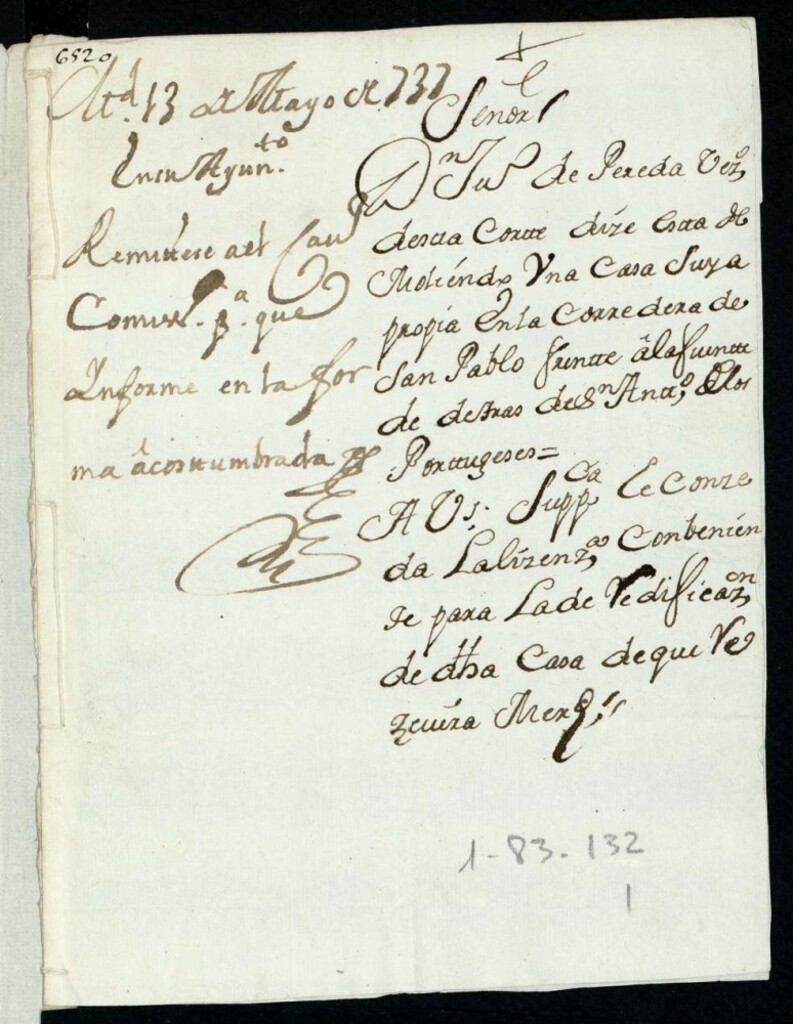 6520
Md. 13 de Mayo de 737
En su Ayunto.
Remitese al Cauº
Comisº. pa. que
Informe en la for
ma acostumbrada
Señor
Dn Juº de Pereda Vezº
desta Cortte dize esta de
Moliendº Vna Casa Suya
propia en la Corredera de
San Pablo frentte â la fuentte
de detras de Sn Anttº, de los
Porttugeses =
A VS. Suppca Le Conze
da La lizenzª Conbenien
te para La de Redificazon
de dha Casa de que Re
zeuira Merd
1-83-132
1